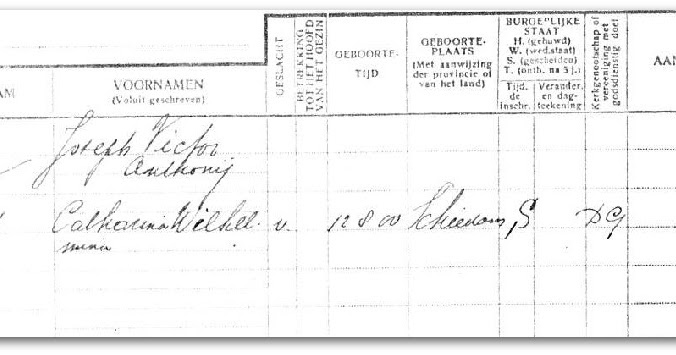 GESLACHT
BETREKKING
TOT HET HOOFD
VAN HET GEZIN
GEBOORTE-
TIJD
GEBOORTE-
PLAATS
(Met aanwijzing
der provincie of
van het land)
BURGERLIJKE
STAAT
H. (gehuwd)
W. (wed.staat)
S. (gescheiden)
T. (onth. na 5 j.)
Tijd.
de
inschr.
Verander.
en dag-
teekening
Kerkgenootschap of
vereeniging met
godsdienstig doel
AAN
AM
VOORNAMEN
(Voluit geschreven)
Joseph Victor
Anthonij
Catharina Wilhel-
mina
v.
12 8 00
Schiedam
S
DG